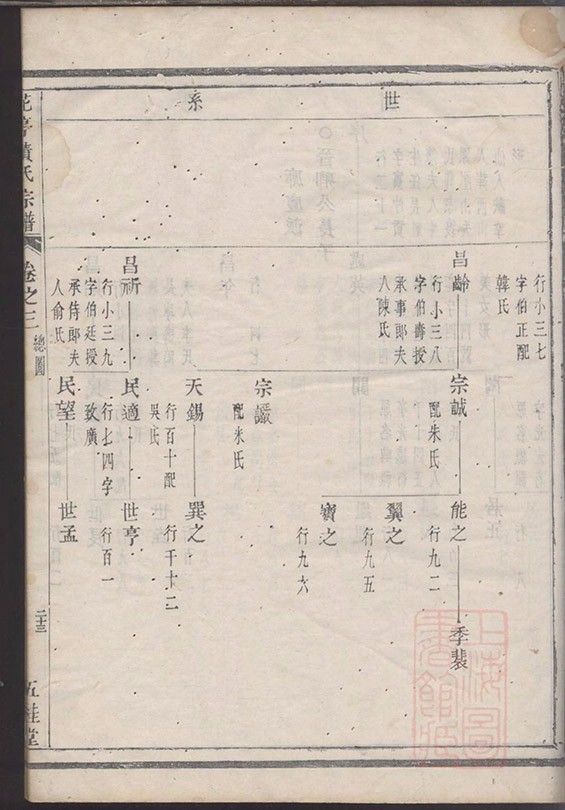 世系
行小三七
字伯正配
韓氏
昌齡
行小三八
字伯壽授
承事郎夫
人陳氏
宗誠
配朱氏
能之
行九二
季裴
翼之
行九五
寳之
行九六
宗讖
配米氏
天錫
行百十配
吳氏
巽之
行千十二
昌祈
行小三九
字伯廷授
承侍郎夫
人俞氏
民適
行七四字
致廣
世亨
行百一
民望
世孟
花亭黃氏宗譜
卷之三
總圖
二十三
五桂堂
上海圖
書館